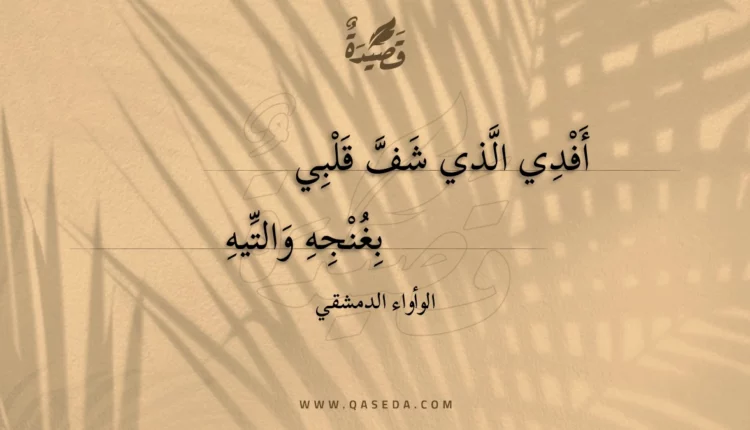 قَصِيْدَةٌ
أَفْدِي الَّذي شَفَّ قَلْبِي
بِغُنْجِهِ وَالتِّيهِ
الوأواء الدمشقي
WWW.QASEDA.COM